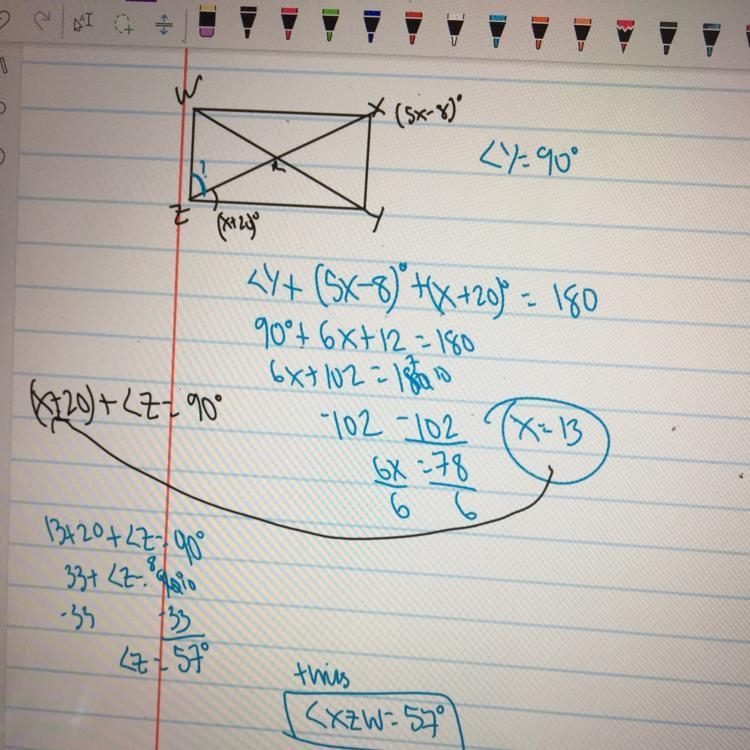 W
X (5x-8)°
∠Y = 90°
?
R
Z
(x+20)°
Y
∠Y + (5x-8)° + (x+20)° = 180
90° + 6x + 12 = 180
6x + 102 = 180
-102 -102
6x = 78
6 6
x = 13
(x+20) + ∠Z = 90°
13+20 + ∠Z = 90°
33 + ∠Z = 90
-33 -33
∠Z = 57°
this
∠XZW = 57°